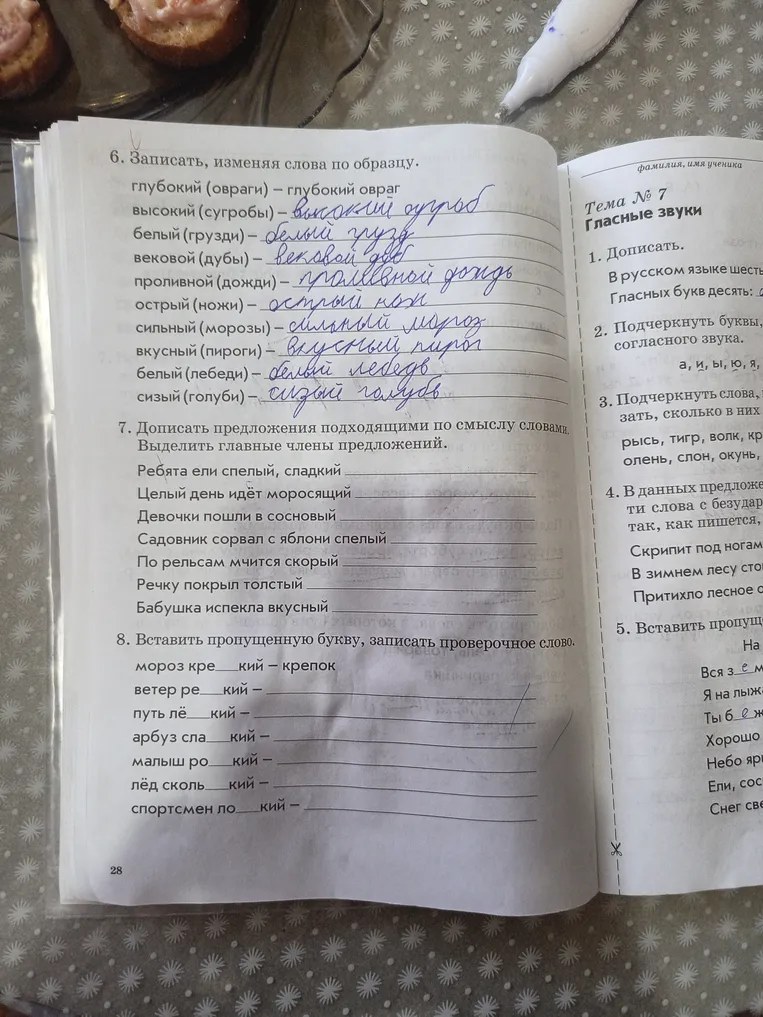 6. Записать, изменяя слова по образцу.
глубокий (овраги) – глубокий овраг
высокий (сугробы) – высокий сугроб
белый (грузди) – белый груздь
вековой (дубы) – вековой дуб
проливной (дожди) – проливной дождь
острый (ножи) – острый нож
сильный (морозы) – сильный мороз
вкусный (пироги) – вкусный пирог
белый (лебеди) – белый лебедь
сизый (голуби) – сизый голубь
7. Дописать предложения подходящими по смыслу словами.
Выделить главные члены предложений.
Ребята ели спелый, сладкий
Целый день идёт моросящий
Девочки пошли в сосновый
Садовник сорвал с яблони спелый
По рельсам мчится скорый
Речку покрыл толстый
Бабушка испекла вкусный
8. Вставить пропущенную букву, записать проверочное слово.
мороз кре__кий – крепок
ветер ре__кий –
путь лё__кий –
арбуз сла__кий –
малыш ро__кий –
лёд сколь__кий –
спортсмен ло__кий –
28
фамилия, имя ученика
Тема № 7
Гласные звуки
1. Дописать.
В русском языке шесть
Гласных букв десять:
2. Подчеркнуть буквы,
согласного звука.
а, и, ы, ю, я,
3. Подчеркнуть слова,
зать, сколько в них
рысь, тигр, волк, кр
олень, слон, окунь,
4. В данных предложе
ти слова с безудар
так, как пишется,
Скрипит под ногам
В зимнем лесу сто
Притихло лесное о
5. Вставить пропуще
На
Вся з е м
Я на лыж
Ты б е ж
Хорошо
Небо ярк
Ели, сос
Снег све